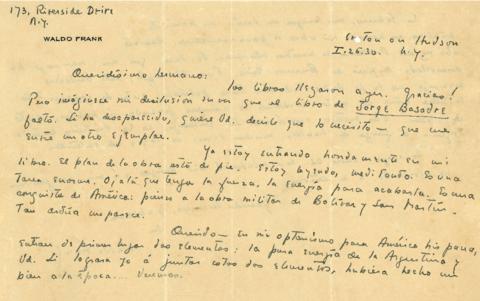 173, Riverside Drive
N.Y.
WALDO FRANK
Croton on Hudson
I.26.30. N.Y.
Queridísimo hermano:
Los libros llegaron ayer. Gracias!
Pero imagínese mi desilusión en ver que el libro de Jorge Basadre
falta. Si ha desaparecido, quiere Vd. decirle que lo necesito — que me
envíe un otro ejemplar.
Ya estoy entrando hondamente en mi
libro. El plan de la obra está de pie. Estoy leyendo, meditando. Es una
tarea enorme. Ojalá que tenga la fuerza, la energía para acabarla. Es una
conquista de América: pareja a la obra militar de Bolívar y San Martín.
Tan ardua me parece.
Querido — en mi optimismo para América hispana,
entran en primer lugar dos elementos: la pura energía de la Argentina y
Vd. Si lograra yo á juntar estos dos elementos, hubiera hecho un
bien a la época.... Veremos.